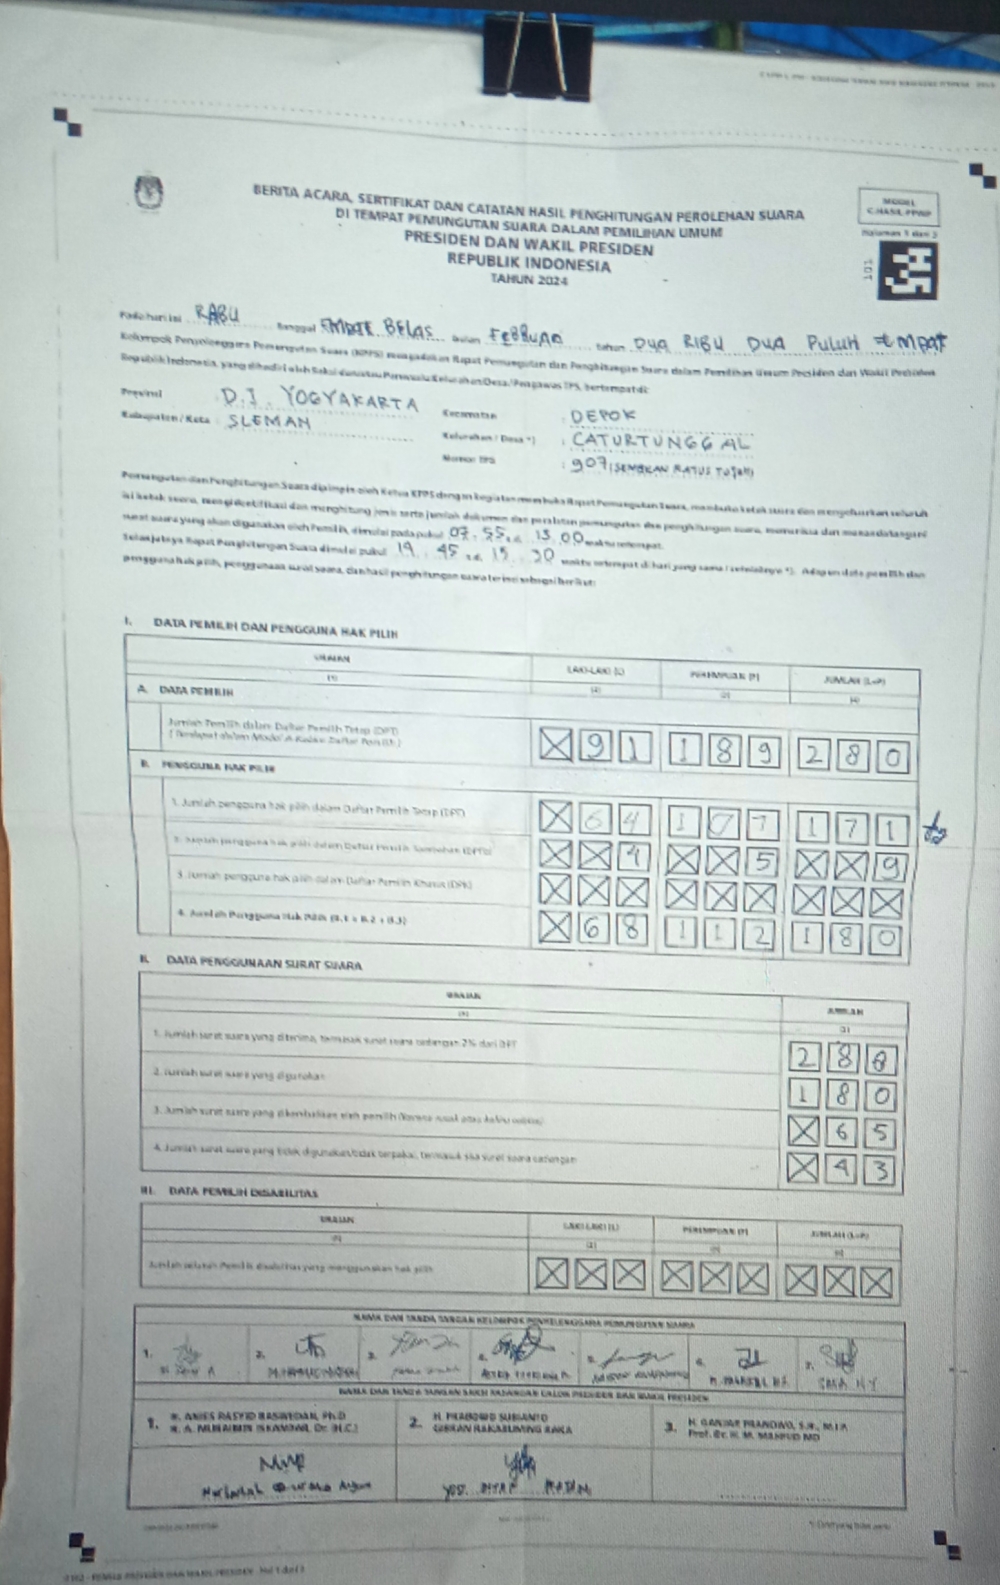 BERITA ACARA, SERTIFIKAT DAN CATATAN HASIL PENGHITUNGAN PEROLEHAN SUARA
DI TEMPAT PEMUNGUTAN SUARA DALAM PEMILIHAN UMUM
PRESIDEN DAN WAKIL PRESIDEN
REPUBLIK INDONESIA
TAHUN 2024
MODEL
C.HASIL-PPWP
Halaman 1 dari 3
Pada hari ini RABU tanggal EMPAT BELAS bulan FEBRUARI tahun DUA RIBU DUA PULUH EMPAT
Kelompok Penyelenggara Pemungutan Suara (KPPS) mengadakan Rapat Pemungutan dan Penghitungan Suara dalam Pemilihan Umum Presiden dan Wakil Presiden
Republik Indonesia, yang dihadiri oleh Saksi dan/atau Panwaslu Kelurahan/Desa/Pengawas TPS, bertempat di:
Provinsi : D.I. YOGYAKARTA
Kecamatan : DEPOK
Kabupaten / Kota : SLEMAN
Kelurahan / Desa *) : CATURTUNGGAL
Nomor TPS : 907
Pemungutan dan Penghitungan Suara dipimpin oleh Ketua KPPS dengan kegiatan membuka Rapat Pemungutan Suara, membuka kotak suara dan mengeluarkan seluruh
isi kotak suara, mengidentifikasi dan menghitung jenis serta jumlah dokumen dan peralatan pemungutan dan penghitungan suara, memeriksa dan menandatangani
surat suara yang akan digunakan oleh Pemilih, dimulai pada pukul 07.55 s.d. 13.00 waktu setempat.
Selanjutnya Rapat Penghitungan Suara dimulai pukul 14.45 s.d. 15.30 waktu setempat di hari yang sama / *). Adapun data pemilih dan
pengguna hak pilih, penggunaan surat suara, dan hasil penghitungan suara terinci sebagai berikut:
I. DATA PEMILIH DAN PENGGUNA HAK PILIH
URAIAN LAKI-LAKI (L) PEREMPUAN (P) JUMLAH (L+P)
(1) (2) (3) (4)
A. DATA PEMILIH
Jumlah Pemilih dalam Daftar Pemilih Tetap (DPT) X 9 1 1 8 9 2 8 0
B. PENGGUNA HAK PILIH
1. Jumlah pengguna hak pilih dalam Daftar Pemilih Tetap (DPT) X 6 4 1 0 7 1 7 1
2. Jumlah pengguna hak pilih dalam Daftar Pemilih Tambahan (DPTb) X X 4 X X 5 X X 9
3. Jumlah pengguna hak pilih dalam Daftar Pemilih Khusus (DPK) X X X X X X X X X
4. Jumlah Pengguna Hak Pilih (B.1 + B.2 + B.3) X 6 8 1 1 2 1 8 0
II. DATA PENGGUNAAN SURAT SUARA
URAIAN JUMLAH
(1) (2)
1. Jumlah surat suara yang diterima, termasuk surat suara cadangan 2% dari DPT 2 8 8
2. Jumlah surat suara yang digunakan 1 8 0
3. Jumlah surat suara yang dikembalikan oleh pemilih X 6 5
4. Jumlah surat suara yang tidak digunakan/tidak terpakai, termasuk sisa surat suara cadangan X 4 3
III. DATA PEMILIH DISABILITAS
URAIAN LAKI-LAKI (L) PEREMPUAN (P) JUMLAH (L+P)
(1) (2) (3) (4)
Jumlah seluruh Pemilih disabilitas yang menggunakan hak pilih X X X X X X X X X
NAMA DAN TANDA TANGAN KELOMPOK PENYELENGGARA PEMUNGUTAN SUARA
1. 2. 3. 4. 5. 6. 7.
NAMA DAN TANDA TANGAN SAKSI PASANGAN CALON PRESIDEN DAN WAKIL PRESIDEN
1. H. ANIES RASYID BASWEDAN, Ph.D
H. A. MUHAIMIN ISKANDAR, Dr. (H.C.)
2. H. PRABOWO SUBIANTO
GIBRAN RAKABUMING RAKA
3. H. GANJAR PRANOWO, S.H., M.I.P.
Prof. Dr. H. M. MAHFUD MD